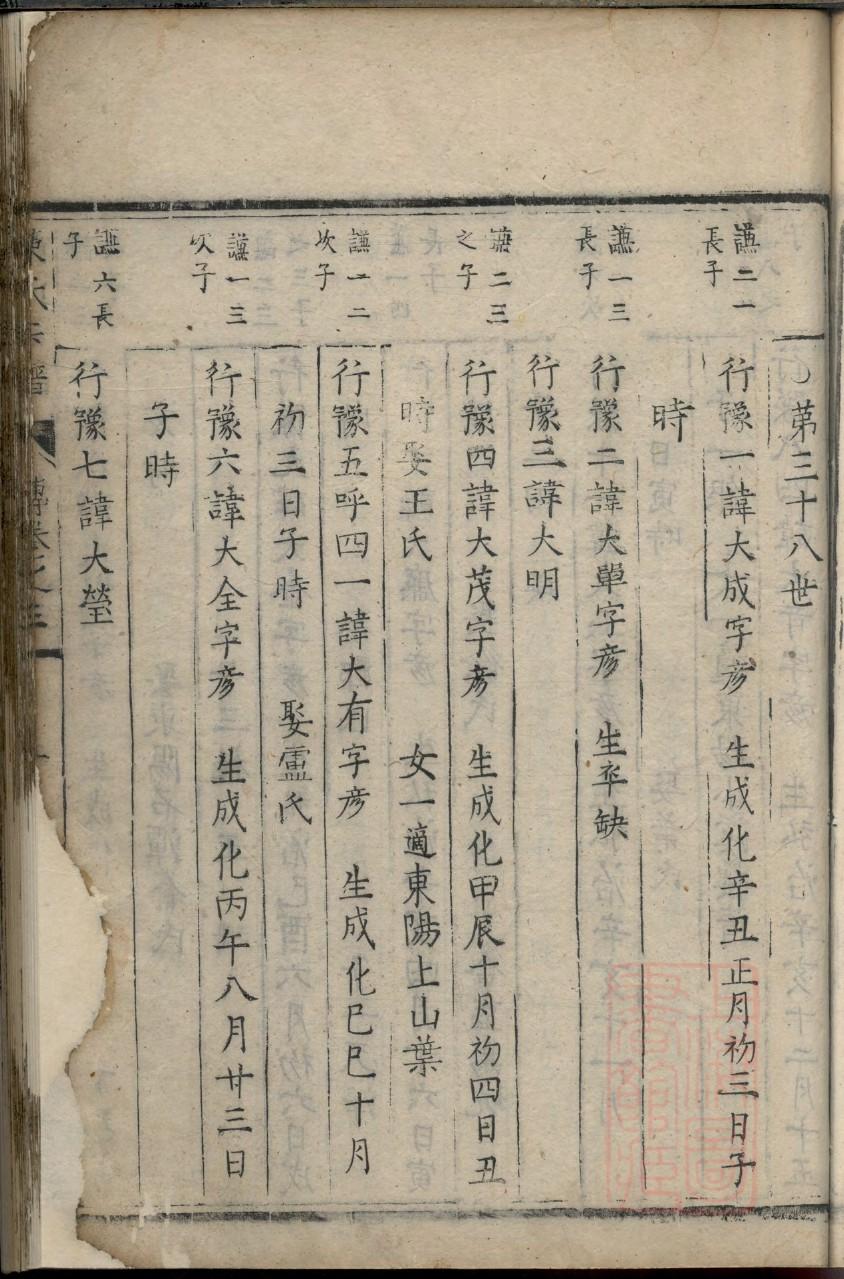 第三十八世
謙二一長子
行豫一諱大成字彥　生成化辛丑正月初三日子
時
謙一三長子
行豫二諱大單字彥　生卒缺
行豫三諱大明
謙二三之子
行豫四諱大茂字彥　生成化甲辰十月初四日丑
時娶王氏　女一適東陽上山葉
謙一二次子
行豫五呼四一諱大有字彥　生成化巳巳十月
初三日子時　娶盧氏
謙一三次子
行豫六諱大全字彥　生成化丙午八月廿三日
子時
謙六長子
行豫七諱大瑩